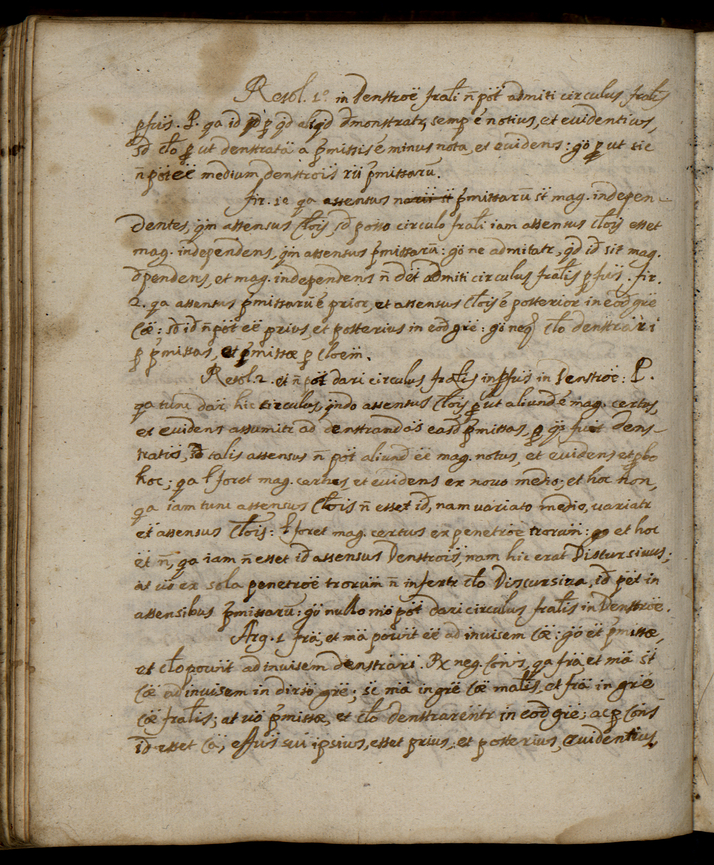 Resol. 1º in denstroẽ frãli ñ põt admiti circulus frãlis
pfus. P. qa id p qd aliqd dmonstratr, semp ẽ notius, et evidentius,
sd clo p ut denstrata a pmissis ẽ minus nota, et evidens: go p ut sic
ñ põt eẽ medium denstrois pmissarũ.
fir. 1e qa assensus pmissarũ st mag. indepen-
dentes, qm assensus clois, sd posso circulo frali iam assensus clois esset
mag. independens, qm assensus pmissarũ: go ne admitatr, qd id sit mag.
dpendens, et mag. independens ñ det admiti circulus fralis pfus. fir.
2. qa assensus pmissarũ ẽ prior, et assensus clois ẽ posterior in eod gre
cæ: sd id ñ põt eẽ prius, et posterius in eod gre: go neq clo denstrari
p pmissas, et pmissæ p cloem.
Resol. 2. et ñ põt dari circulus fralis inpfus in denstroe: P.
qa tunc dar. hic circulus, qndo assensus clois p ut aliunde mag. certus,
et evidens assumitr ad denstrandas easd pmissas, p qs fuit dens-
tratus, sd talis assensus ñ põt aliund eẽ mag. notus, et evidens: et pbo
hoc; qa l foret mag. certus et evidens ex novo medio; et hoc non,
qa iam tunc assensus clois ñ esset id, nam variato medio, variatr
et assensus clois: l foret mag. certus ex penetroe trorum: et hoc
et ñ, qa iam ñ esset id assensus denstrois, nam hic erat discursivus;
at vo ex sola penetroe trorum ñ infertr clo discursiva, sd pet in
assensibus pmissarũ: go nullo mo põt dari circulus fralis in denstroe.
Arg. 1 fra, et ma poũnt eẽ ad invisem cæ: go et pmissæ,
et clo poũnt ad invisem denstrari. Rx neg. cons, qa fra, et ma st
cæ ad invisem in dirso gre; sc ma in gre cæ malis, et fra in gre
cæ fralis; at vo pmissæ, et clo denstrarentr in eod gre; ac p cons
id esset ca, effus sui ipsius, esset prius, et posterius, evidentius,